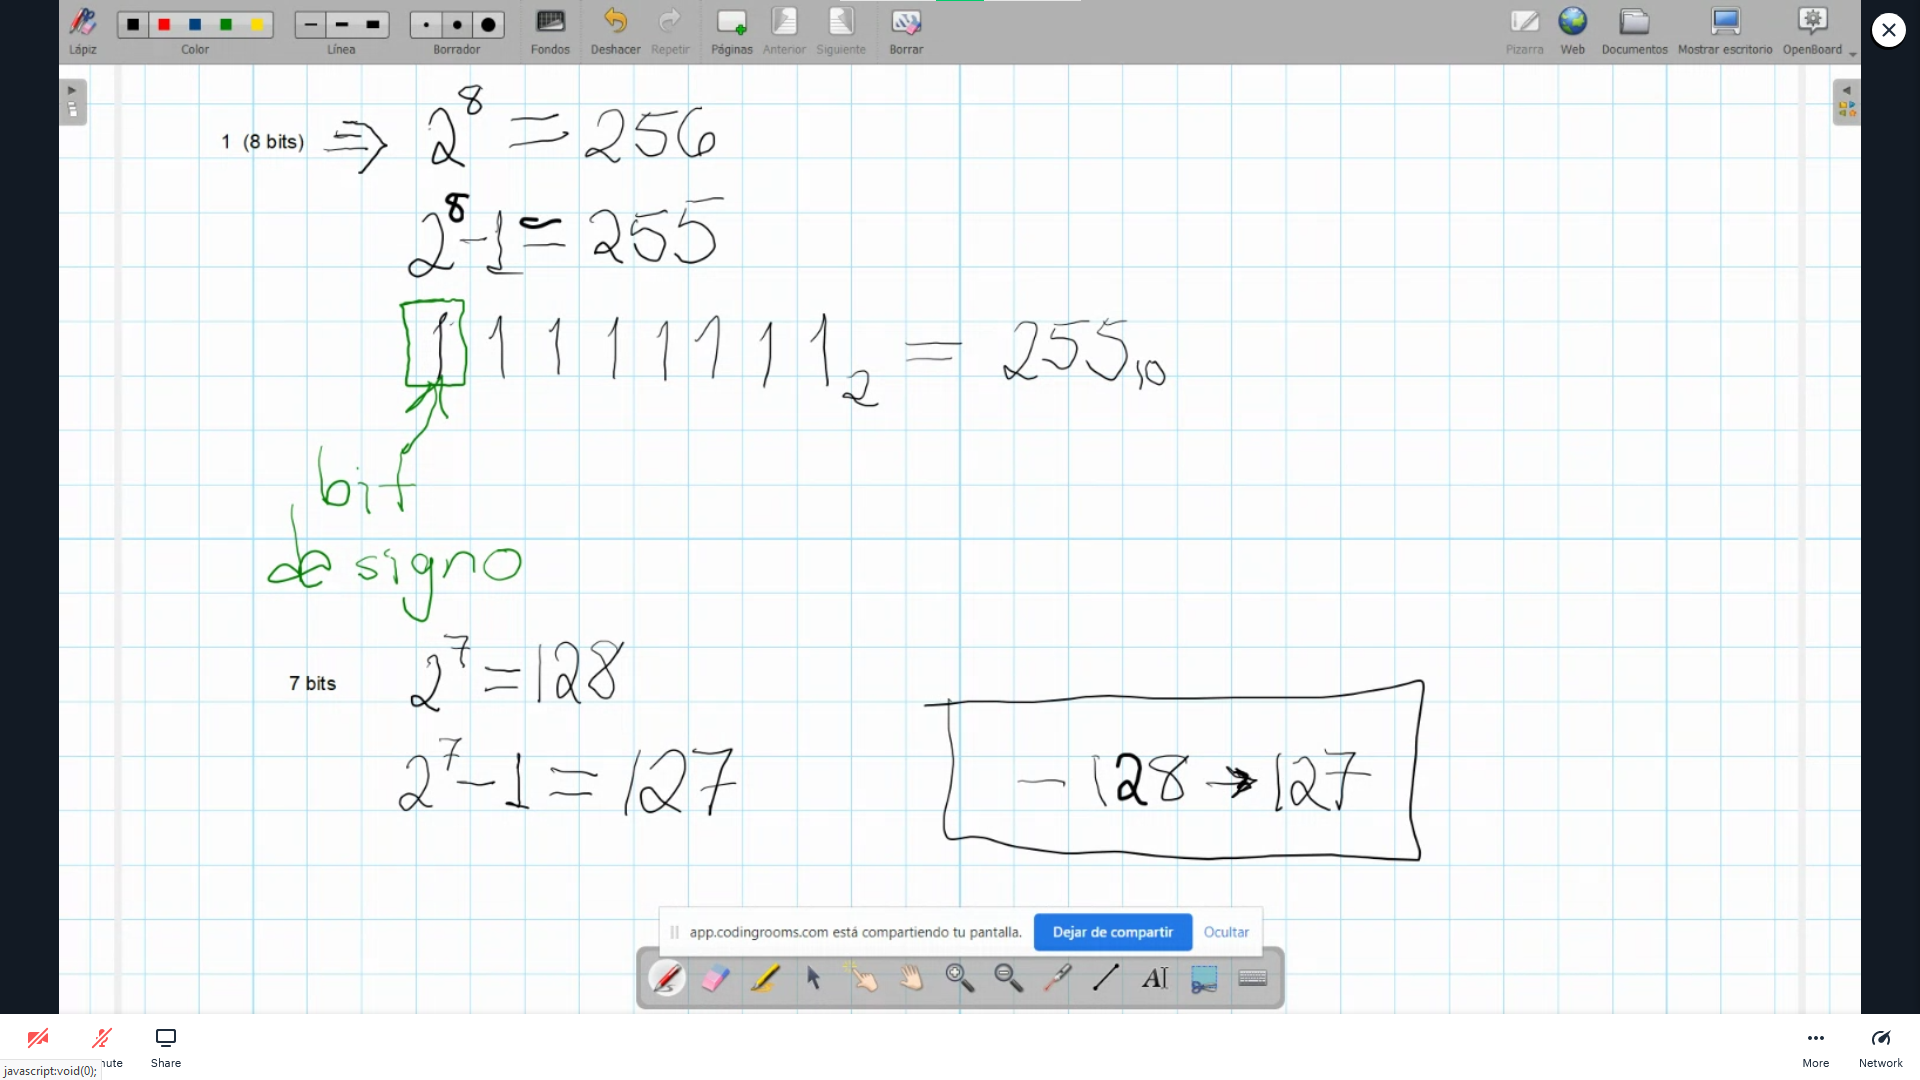 Lápiz Color Línea Borrador Fondos Deshacer Repetir Páginas Anterior Siguiente Borrar Pizarra Web Documentos Mostrar escritorio OpenBoard
1 (8 bits) ⇒ 2^8 = 256
2^8 - 1 = 255
1 1 1 1 1 1 1 1₂ = 255₁₀
bit
de signo
7 bits 2^7 = 128
2^7 - 1 = 127
- 128 → 127
app.codingrooms.com está compartiendo tu pantalla. Dejar de compartir Ocultar
AI
mute Share More Network
javascript:void(0);